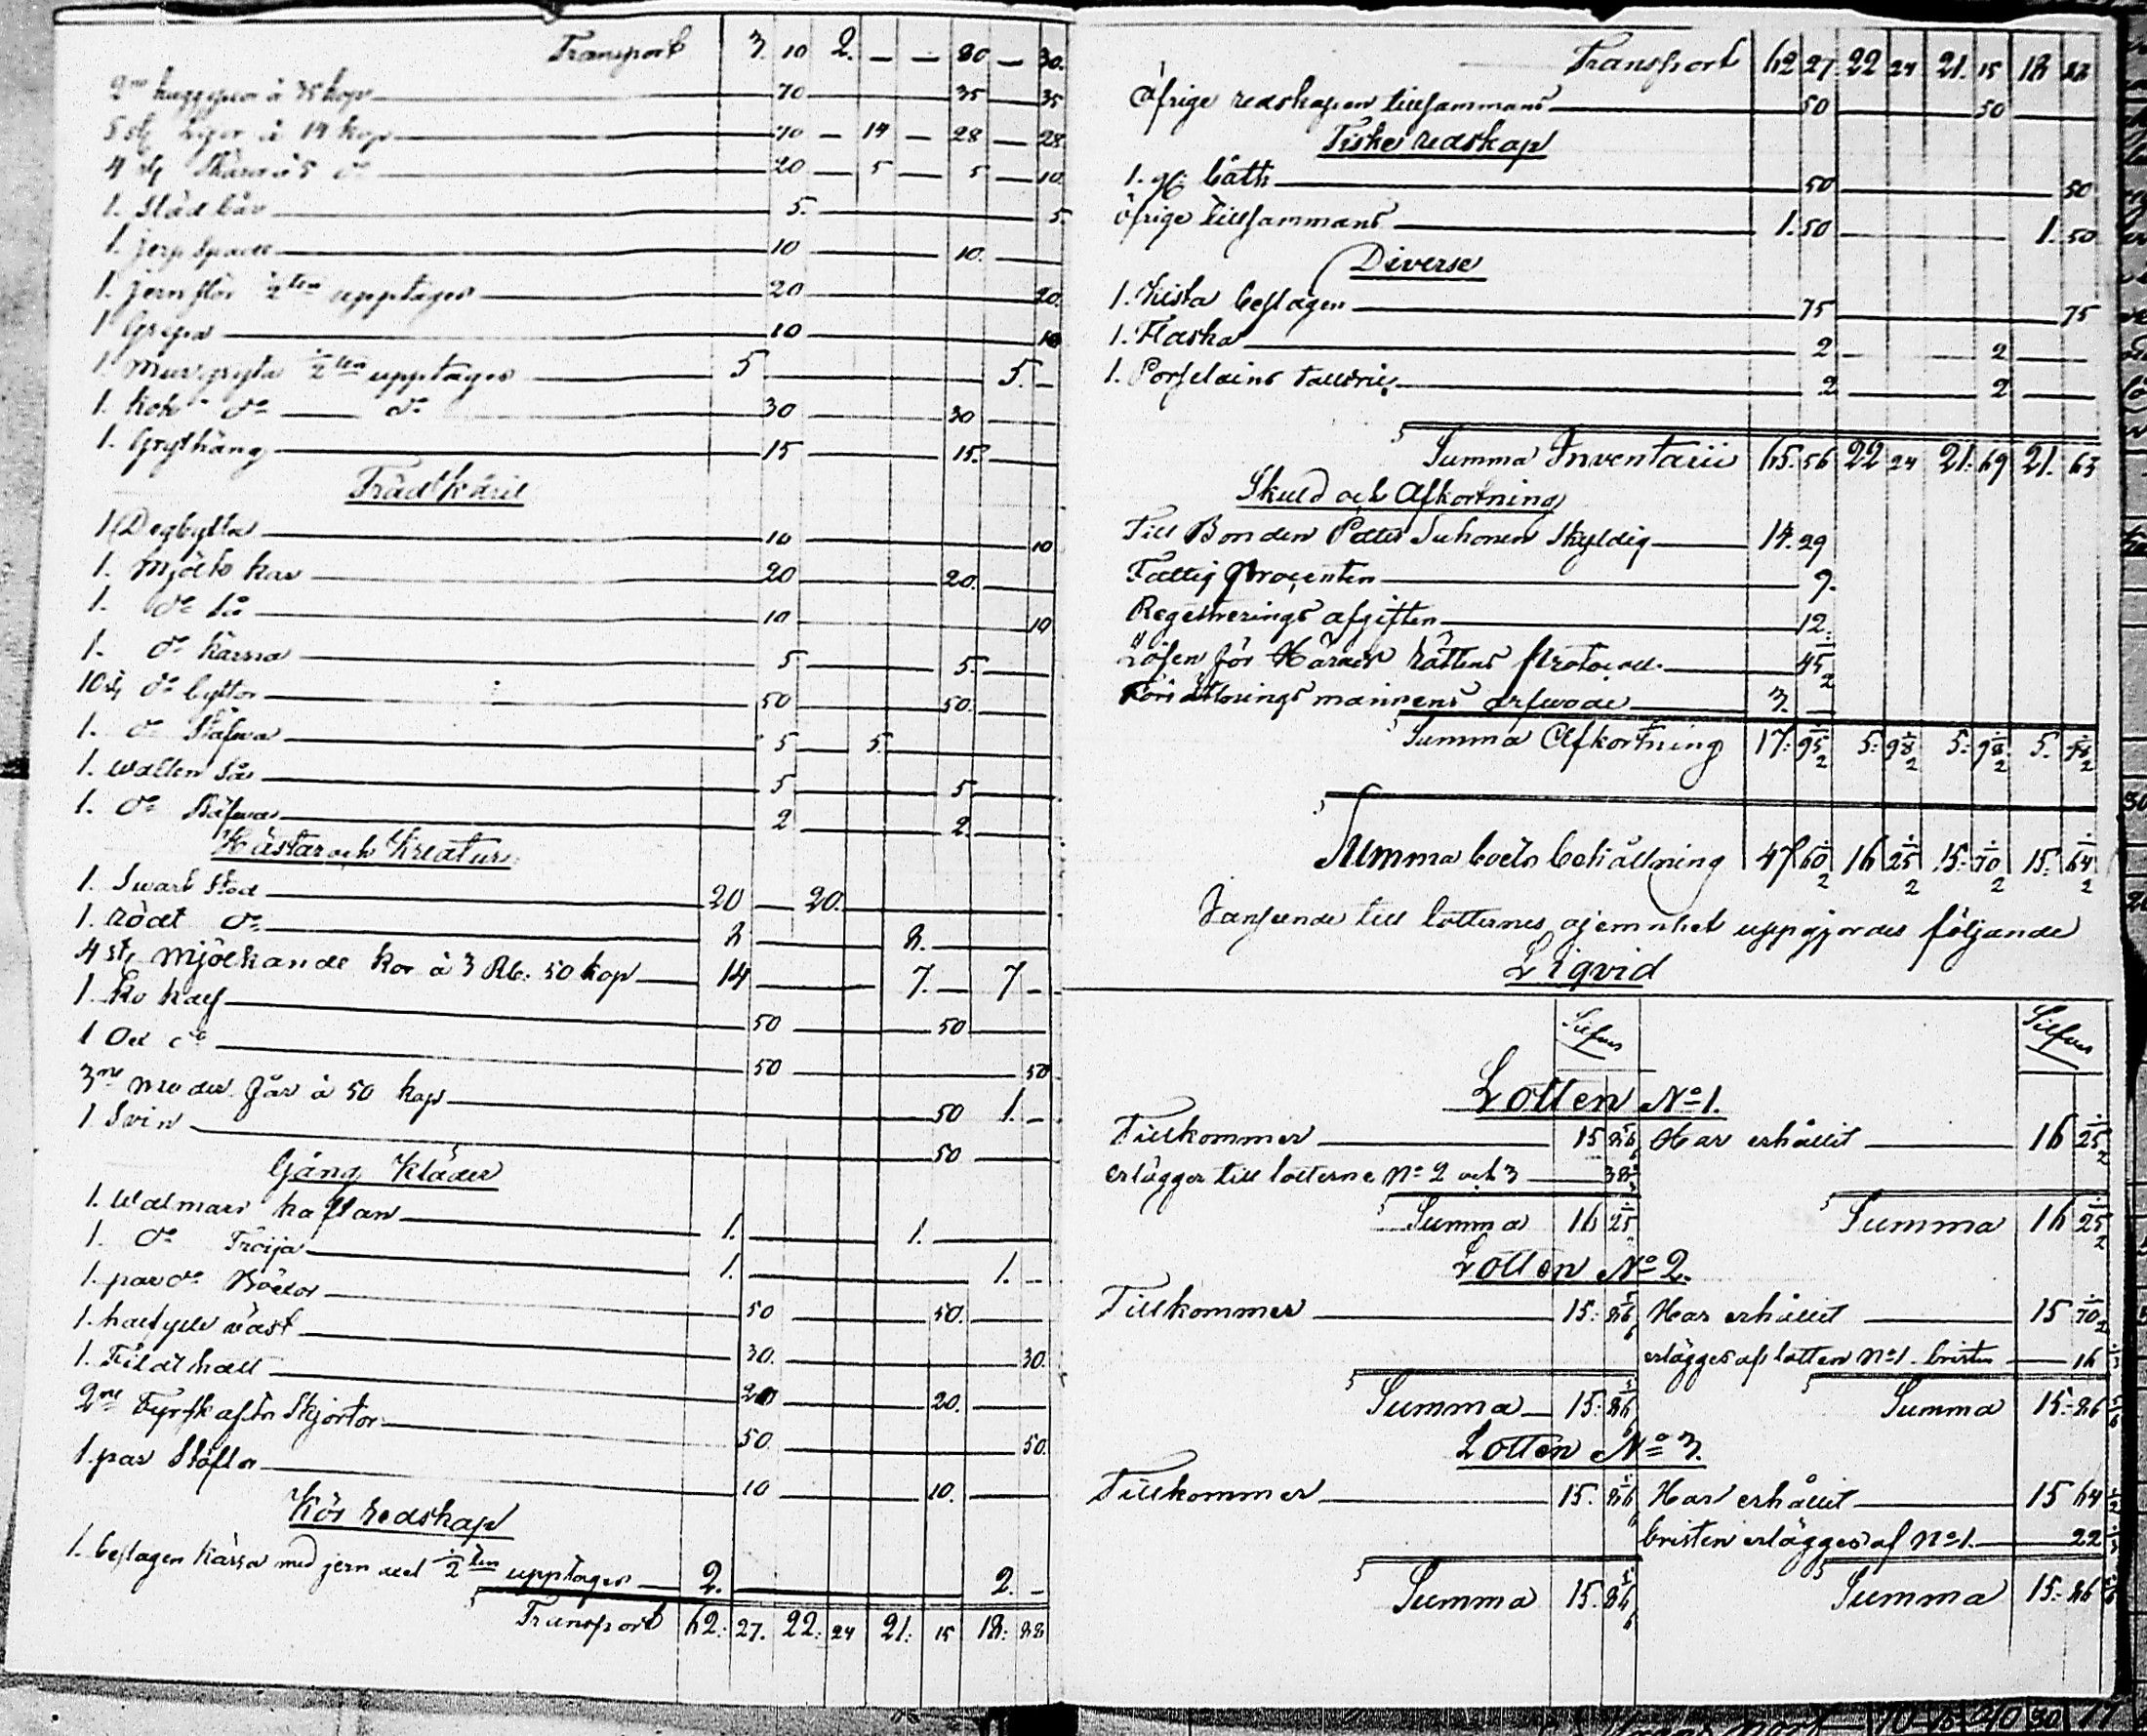 Transport 3. 10 2. — — 80 — 30.
2ne huggyxor à 35 kop 70 35 35
5 st. Liger à 14 kop 70 — 14 — 28 — 28
4 st. Skäror à 5 do 20 — 5 — 5 — 10
1. 5. 5.
1. jern Spade 10 10.
1. jern 1/2ten upptages 20 20.
1 Grepa 10 10
1. Mur gryta 1/2ten upptages 5 5. —
1. Kok do do 30 30
1. Grythäng 15 15.
Trädkäril
1 Degbytta 10 10
1. Mjölk kar 20 20.
1. do så 10 10
1. do kärna 5 5.
10 st. do byttor 50 50.
1. do Stäfwa 5 5.
1. watten så 5 5
1. do Stäfwa 2 2.
Hästar och Kreatur.
1. Swart Stod 20 — 20.
1. rödt do 8 8.
4 st. Mjölkande kor à 3 Rb. 50 kop 14 7. — 7 —
1. ko kalf 50 50
1 Ox do 50 50
3ne moder får à 50 kop 50 1. —
1 Svin 50
Gång Kläder
1. Walmars kaftan 1. 1.
1. do Tröija 1. 1. —
1. par do Böxor 50 50.
1. halfylle väst 30. 30.
1. Fildt hatt 20 20.
2ne Tyskafts Skjortor 50. 50.
1. par Stöflor 10 10.
Kör redskap
1. beslagen kärra med jern axel 1/2ten upptages 2. 2. —
Transport 62. 27. 22. 24 21. 15 18. 88
Transport 62 27. 22 24 21. 15 18 88
Öfrige redskapen tillsammans 50 50
Fiske redskap
1. båth 50 50
öfrige tillsammans 1. 50 1. 50
Diverse
1. Kista beslagen 75 75
1. Flaska 2 2
1. Porslains tallrik 2 2
Summa Inventarii 65. 56 22 24 21. 69 21. 63
Skuld och Afkortning
Till Bonden Petter Suhonen Skyldig 14. 29
Fattig Procenten 9.
Registrerings afgiften 12.
Lösen för Härads Rättens Protocoll 45 1/2
arfwode 3. —
Summa Afkortning 17. 95 1/2 5. 98 1/2 5. 98 1/2 5. 98 1/2
Summa boets behållning 47 60 1/2 16 25 1/2 15. 70 1/2 15. 64 1/2
Janseende till lotternes ojemnhet uppgjordes följande
Liqvid
Silfver Silfver
Lotten No 1.
Tillkommer 15 86 5/6 Har erhållit 16 25 1/2
erlägger till lotterne No 2 och 3 38
Summa 16 25 Summa 16 25 1/2
Lotten No 2.
Tillkommer 15. 86 5/6 Har erhållit 15 70 1/2
erlägges af lotten No 1. bristen 16 1/3
Summa 15. 86 5/6 Summa 15. 86 5/6
Lotten No 3.
Tillkommer 15. 86 5/6 Har erhållit 15 64 1/2
bristen erlägges af No 1. 22 1/3
Summa 15. 86 5/6 Summa 15. 86 5/6